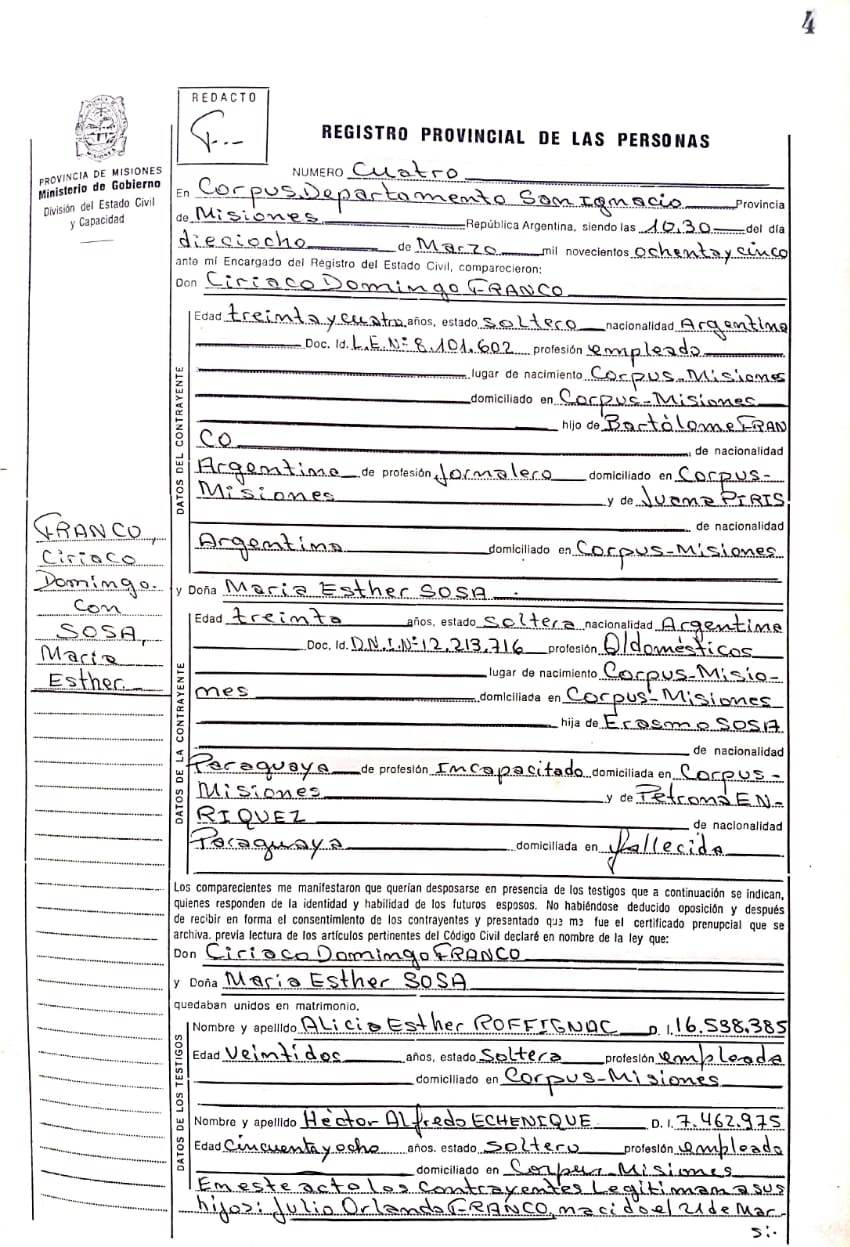 4
REDACTO
REGISTRO PROVINCIAL DE LAS PERSONAS
PROVINCIA DE MISIONES
Ministerio de Gobierno
División del Estado Civil
y Capacidad
NUMERO Cuatro
En Corpus, Departamento San Ignacio Provincia
de Misiones República Argentina, siendo las 10.30 del día
dieciocho de Marzo mil novecientos ochenta y cinco
ante mí Encargado del Registro del Estado Civil, comparecieron:
Don Ciriaco Domingo FRANCO
DATOS DEL CONTRAYENTE
Edad treinta y cuatro años, estado soltero nacionalidad Argentina
Doc. Id. L.E.Nº 8.101.602 profesión empleado
lugar de nacimiento Corpus-Misiones
domiciliado en Corpus-Misiones
hijo de Bartólome FRAN
CO de nacionalidad
Argentina de profesión Jornalero domiciliado en Corpus-
Misiones y de Juana PIRIS
de nacionalidad
Argentina domiciliado en Corpus-Misiones
FRANCO,
Ciriaco
Domingo.
Con
SOSA,
Maria
Esther.
y Doña Maria Esther SOSA
DATOS DE LA CONTRAYENTE
Edad treinta años, estado soltera nacionalidad Argentina
Doc. Id. D.N.I.Nº 12.213.716 profesión Q/domésticos
lugar de nacimiento Corpus-Misio-
nes domiciliada en Corpus-Misiones
hija de Erasmo SOSA
de nacionalidad
Paraguaya de profesión Incapacitado domiciliada en Corpus-
Misiones y de Petrona EN-
RIQUEZ de nacionalidad
Paraguaya domiciliada en fallecida
Los comparecientes me manifestaron que querían desposarse en presencia de los testigos que a continuación se indican,
quienes responden de la identidad y habilidad de los futuros esposos. No habiéndose deducido oposición y después
de recibir en forma el consentimiento de los contrayentes y presentado que me fue el certificado prenupcial que se
archiva. previa lectura de los artículos pertinentes del Código Civil declaré en nombre de la ley que:
Don Ciriaco Domingo FRANCO
y Doña Maria Esther SOSA
quedaban unidos en matrimonio.
DATOS DE LOS TESTIGOS
Nombre y apellido Alicia Esther ROFFIGNAC D. I. 16.538.385
Edad Veintidos años, estado Soltera profesión empleada
domiciliado en Corpus-Misiones
Nombre y apellido Héctor Alfredo ECHENIQUE D. I. 7.462.975
Edad Cincuenta y ocho años. estado soltero profesión empleado
domiciliado en Corpus Misiones
En este acto los Contrayentes Legitiman a sus
hijos: Julio Orlando FRANCO, nacido el 21 de Mar-
s:-